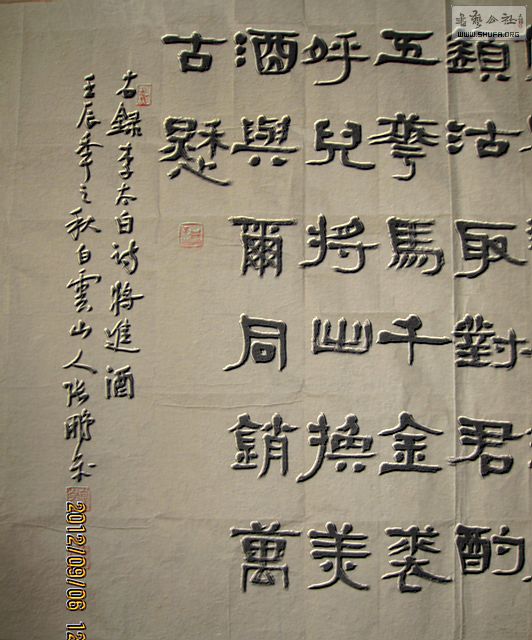 須沽取對君酌
五華馬千金裘
呼兒將出換美
酒與爾同銷萬
古愁
右錄李太白詩將進酒
壬辰年之秋白雲山人張鵬
2012/09/06 12
書藝公社
WWW.SHUFA.ORG